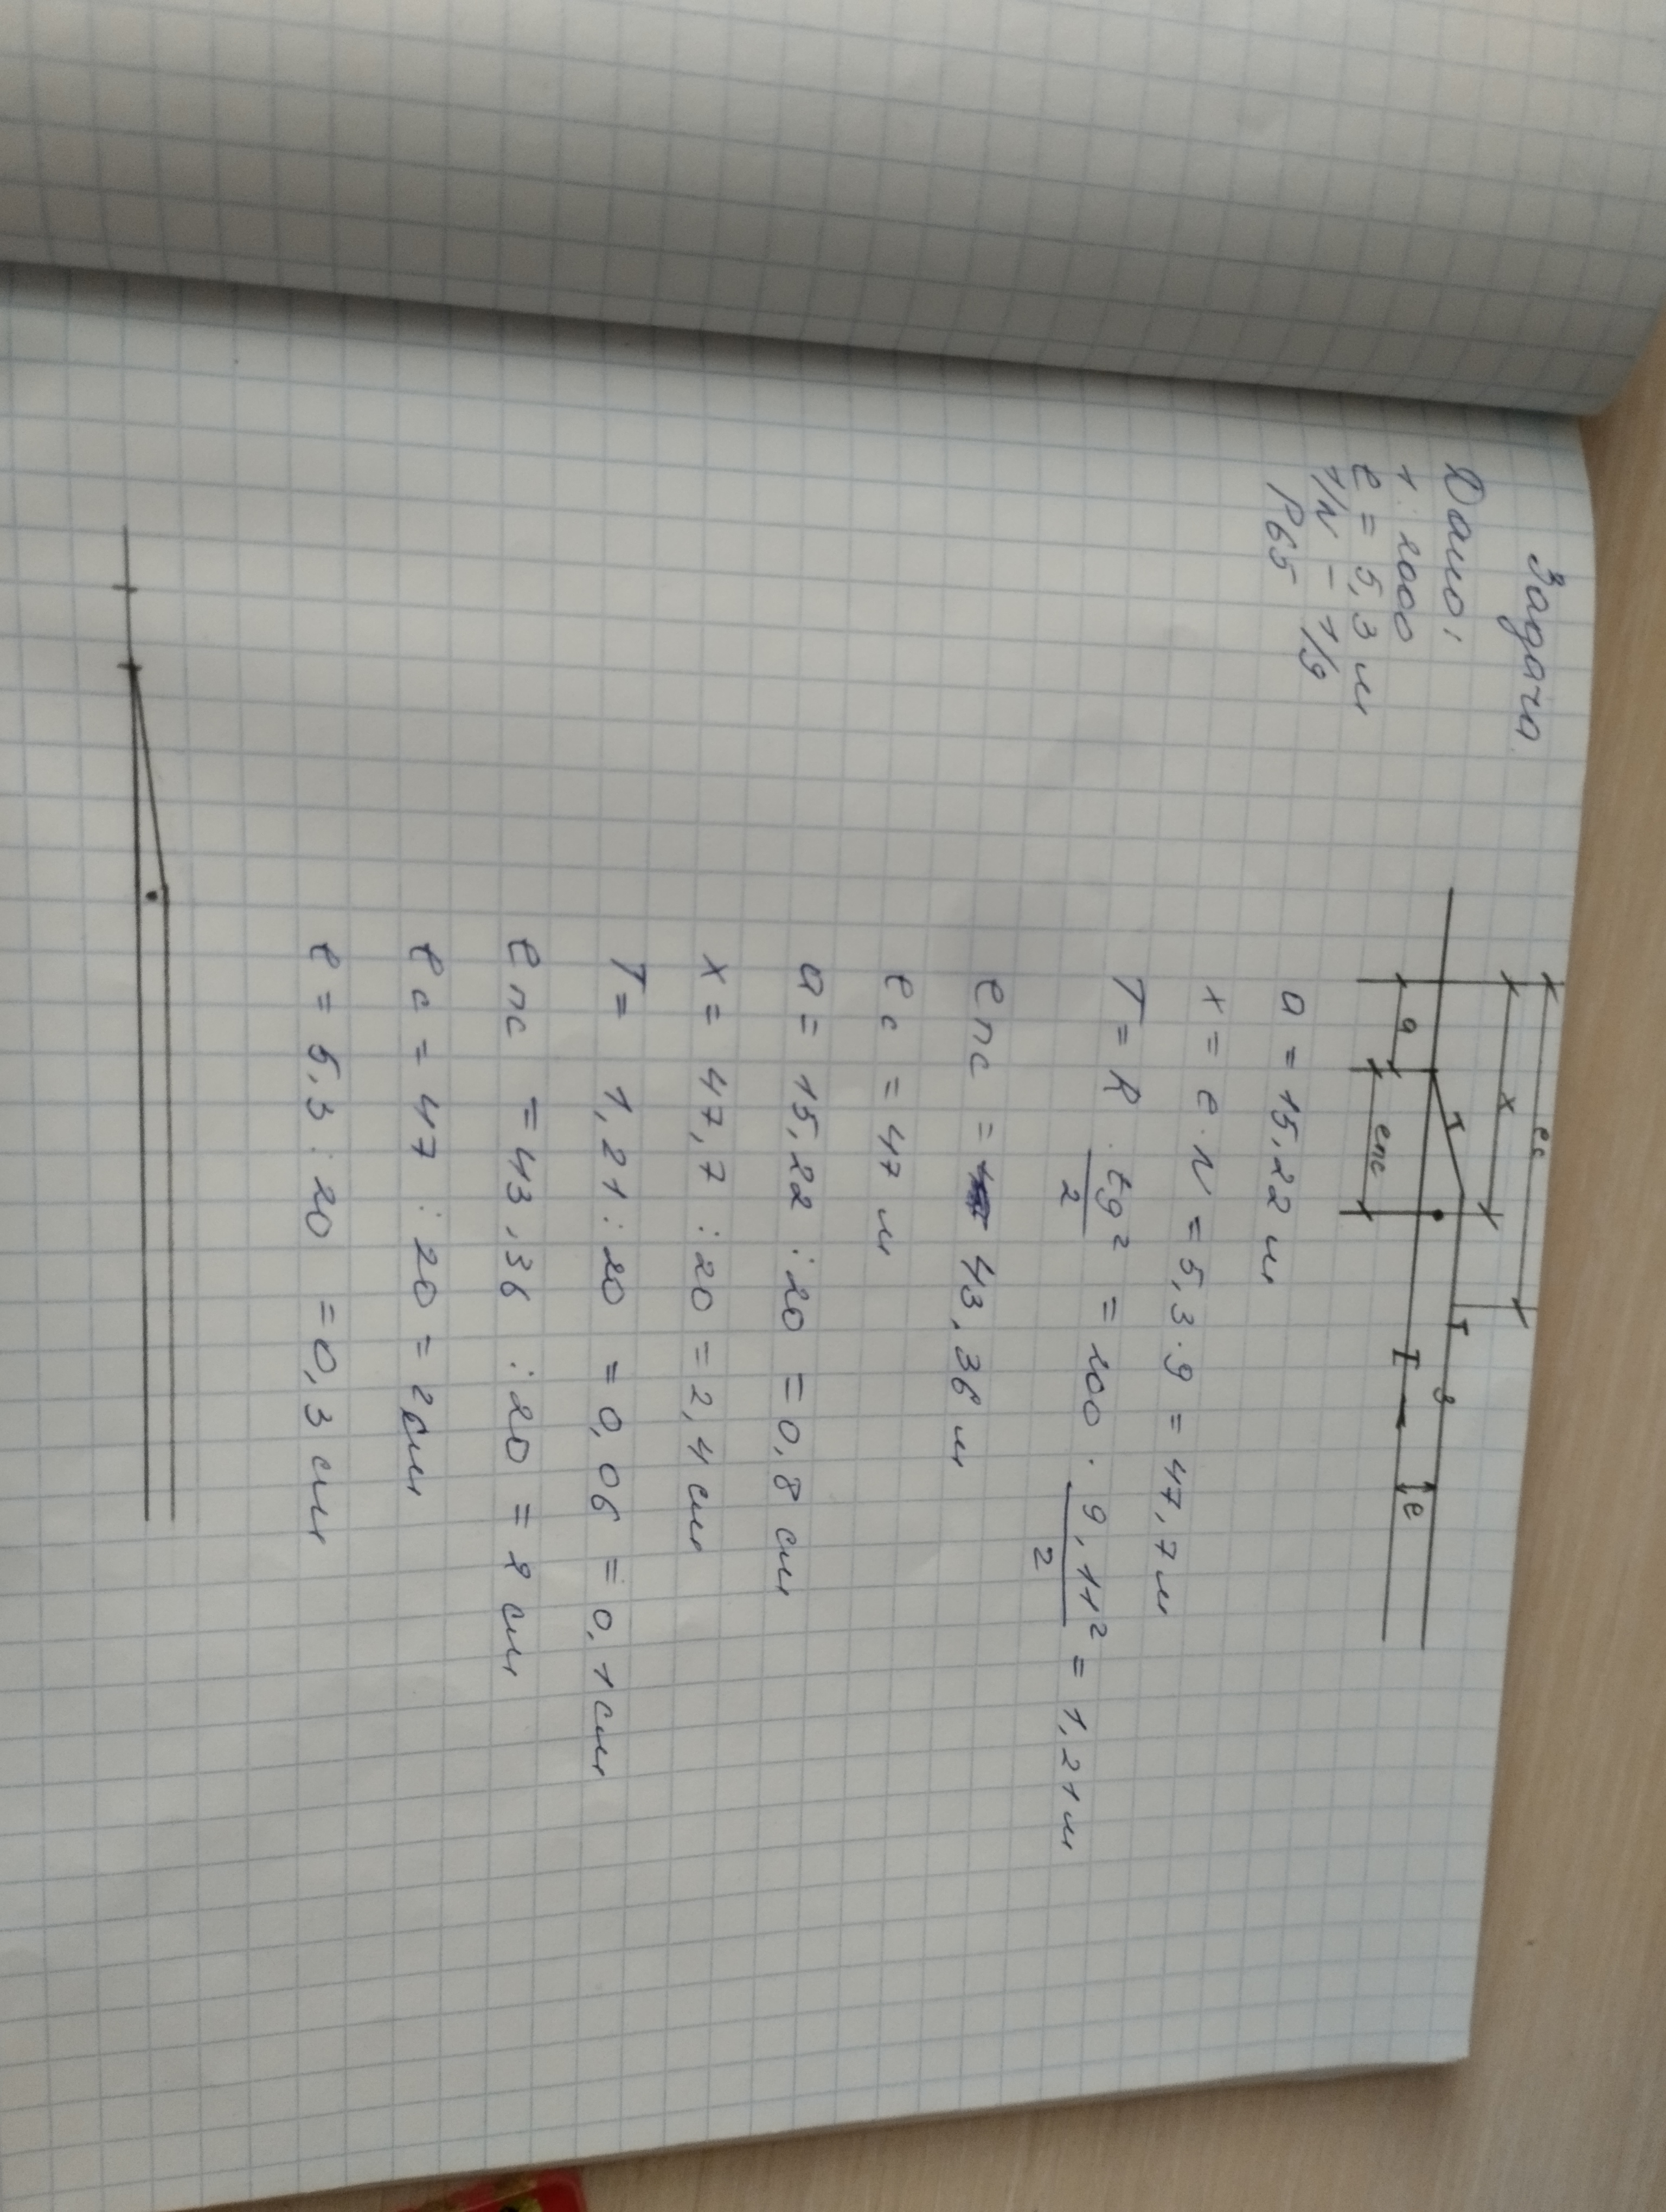 Задача
Дано:
1:2000
e = 5,3 м
1/N - 1/9
Р65
ec
x
a
T
T
eпс
I
3
e
a = 15,22 м
x = e · N = 5,3 · 9 = 47,7 м
T = R · tg²/2 = 200 · 9,11²/2 = 1,21 м
eпс = 43,36 м
ec = 47 м
a = 15,22 : 20 = 0,8 см
x = 47,7 : 20 = 2,4 см
T = 1,21 : 20 = 0,06 = 0,1 см
eпс = 43,36 : 20 = 2 см
ec = 47 : 20 = 2 см
e = 5,3 : 20 = 0,3 см